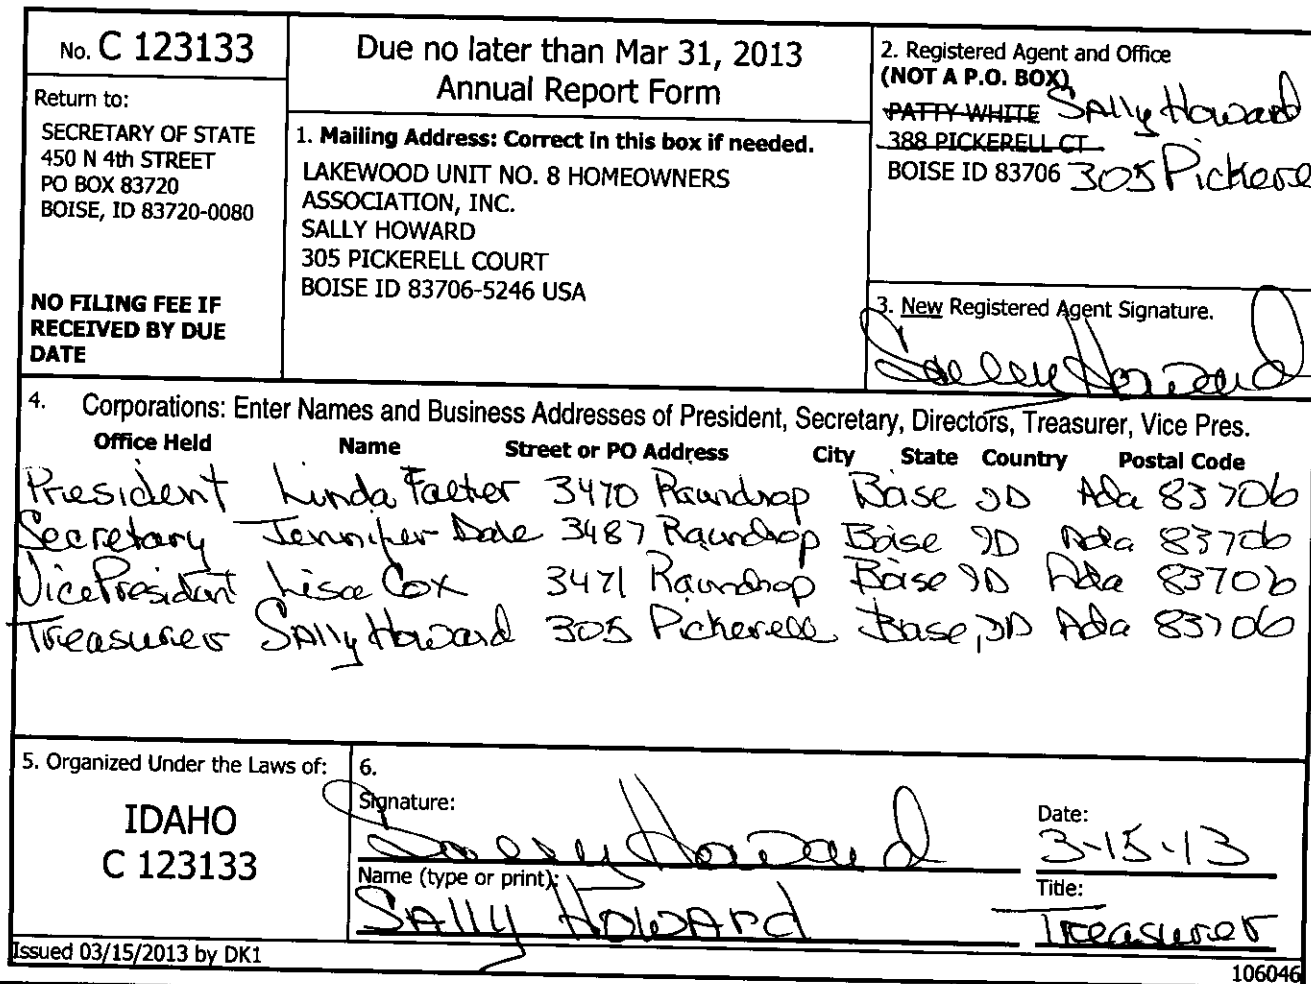 No. C 123133
Return to:
SECRETARY OF STATE
450 N 4th STREET
PO BOX 83720
BOISE, ID 83720-0080
NO FILING FEE IF
RECEIVED BY DUE
DATE
Due no later than Mar 31, 2013
Annual Report Form
1. Mailing Address: Correct in this box if needed.
LAKEWOOD UNIT NO. 8 HOMEOWNERS
ASSOCIATION, INC.
SALLY HOWARD
305 PICKERELL COURT
BOISE ID 83706-5246 USA
2. Registered Agent and Office
(NOT A P.O. BOX)
PATTY WHITE SAlly Howard
388 PICKERELL CT
BOISE ID 83706 305 Pickere
3. New Registered Agent Signature.
Sally Howard
4. Corporations: Enter Names and Business Addresses of President, Secretary, Directors, Treasurer, Vice Pres.
Office Held Name Street or PO Address City State Country Postal Code
President Linda 3470 Raundrop Boise ID Ada 83706
Secretary Jennifer Dale 3487 Raundrop Boise ID Ada 83706
Vice President Lisa Cox 3471 Raundrop Boise ID Ada 83706
Treasurer SAlly Howard 305 Pickerell Boise, ID Ada 83706
5. Organized Under the Laws of:
IDAHO
C 123133
6.
Signature:
Sally Howard
Date:
3-15-13
Name (type or print):
SAlly HOWARd
Title:
Treasurer
Issued 03/15/2013 by DK1
106046